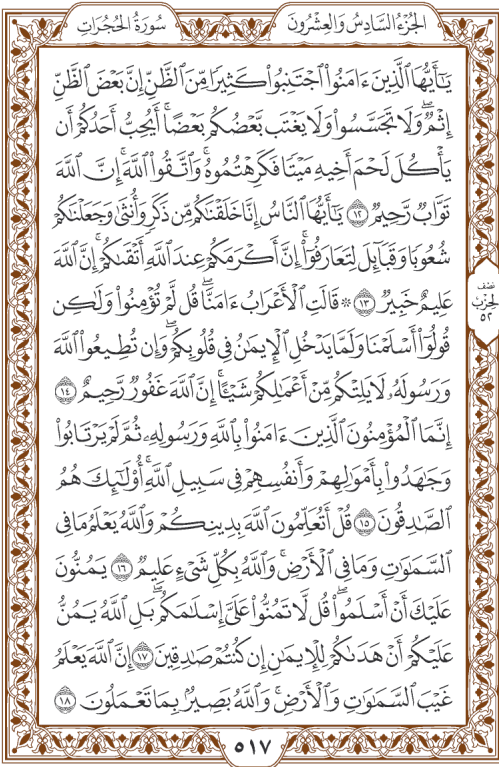 الجُزْءُ السَّادِسُ وَالعِشْرُونَ
سُورَةُ الحُجُرَاتِ
يَٰٓأَيُّهَا ٱلَّذِينَ ءَامَنُوا۟ ٱجْتَنِبُوا۟ كَثِيرًا مِّنَ ٱلظَّنِّ إِنَّ بَعْضَ ٱلظَّنِّ
إِثْمٌ ۖ وَلَا تَجَسَّسُوا۟ وَلَا يَغْتَب بَّعْضُكُم بَعْضًا ۚ أَيُحِبُّ أَحَدُكُمْ أَن
يَأْكُلَ لَحْمَ أَخِيهِ مَيْتًا فَكَرِهْتُمُوهُ ۚ وَٱتَّقُوا۟ ٱللَّهَ ۚ إِنَّ ٱللَّهَ
تَوَّابٌ رَّحِيمٌ ١٢ يَٰٓأَيُّهَا ٱلنَّاسُ إِنَّا خَلَقْنَٰكُم مِّن ذَكَرٍ وَأُنثَىٰ وَجَعَلْنَٰكُمْ
شُعُوبًا وَقَبَآئِلَ لِتَعَارَفُوٓا۟ ۚ إِنَّ أَكْرَمَكُمْ عِندَ ٱللَّهِ أَتْقَىٰكُمْ ۚ إِنَّ ٱللَّهَ
عَلِيمٌ خَبِيرٌ ١٣ ۞ قَالَتِ ٱلْأَعْرَابُ ءَامَنَّا ۖ قُل لَّمْ تُؤْمِنُوا۟ وَلَٰكِن
قُولُوٓا۟ أَسْلَمْنَا وَلَمَّا يَدْخُلِ ٱلْإِيمَٰنُ فِى قُلُوبِكُمْ ۖ وَإِن تُطِيعُوا۟ ٱللَّهَ
وَرَسُولَهُۥ لَا يَلِتْكُم مِّنْ أَعْمَٰلِكُمْ شَيْـًٔا ۚ إِنَّ ٱللَّهَ غَفُورٌ رَّحِيمٌ ١٤
إِنَّمَا ٱلْمُؤْمِنُونَ ٱلَّذِينَ ءَامَنُوا۟ بِٱللَّهِ وَرَسُولِهِۦ ثُمَّ لَمْ يَرْتَابُوا۟
وَجَٰهَدُوا۟ بِأَمْوَٰلِهِمْ وَأَنفُسِهِمْ فِى سَبِيلِ ٱللَّهِ ۚ أُو۟لَٰٓئِكَ هُمُ
ٱلصَّٰدِقُونَ ١٥ قُلْ أَتُعَلِّمُونَ ٱللَّهَ بِدِينِكُمْ وَٱللَّهُ يَعْلَمُ مَا فِى
ٱلسَّمَٰوَٰتِ وَمَا فِى ٱلْأَرْضِ ۚ وَٱللَّهُ بِكُلِّ شَىْءٍ عَلِيمٌ ١٦ يَمُنُّونَ
عَلَيْكَ أَنْ أَسْلَمُوا۟ ۖ قُل لَّا تَمُنُّوا۟ عَلَىَّ إِسْلَٰمَكُم ۖ بَلِ ٱللَّهُ يَمُنُّ
عَلَيْكُمْ أَنْ هَدَىٰكُمْ لِلْإِيمَٰنِ إِن كُنتُمْ صَٰدِقِينَ ١٧ إِنَّ ٱللَّهَ يَعْلَمُ
غَيْبَ ٱلسَّمَٰوَٰتِ وَٱلْأَرْضِ ۚ وَٱللَّهُ بَصِيرٌۢ بِمَا تَعْمَلُونَ ١٨
نصف
الحزب
٥٢
٥١٧